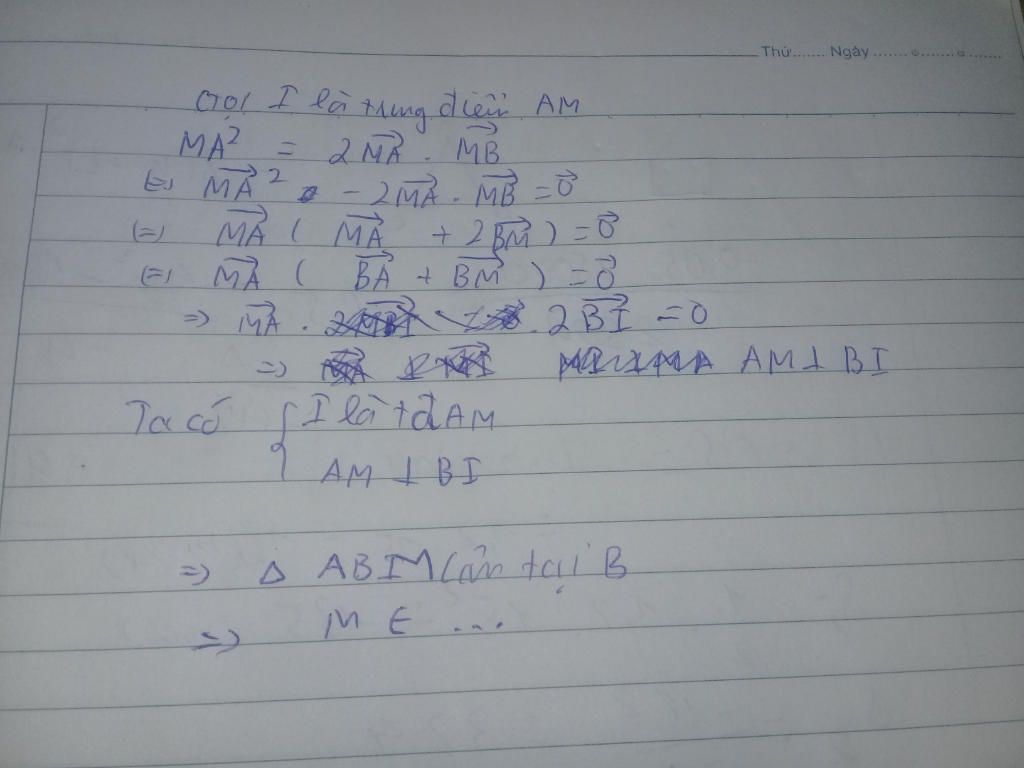 Thứ....... Ngày ....... o ....... o .......
Gọi I là trung điểm AM
MA² = 2\overrightarrow{MA} . \overrightarrow{MB}
(=) \overrightarrow{MA}² - 2\overrightarrow{MA} . \overrightarrow{MB} = \vec{0}
(=) \overrightarrow{MA} ( \overrightarrow{MA} + 2\overrightarrow{BM} ) = \vec{0}
(=) \overrightarrow{MA} ( \overrightarrow{BA} + \overrightarrow{BM} ) = \vec{0}
=> \overrightarrow{MA} . 2\overrightarrow{BI} = 0
=> AM ⊥ BI
Ta có { I là tđ AM
AM ⊥ BI
=> Δ ABM cân tại B
=> M ∈ ...